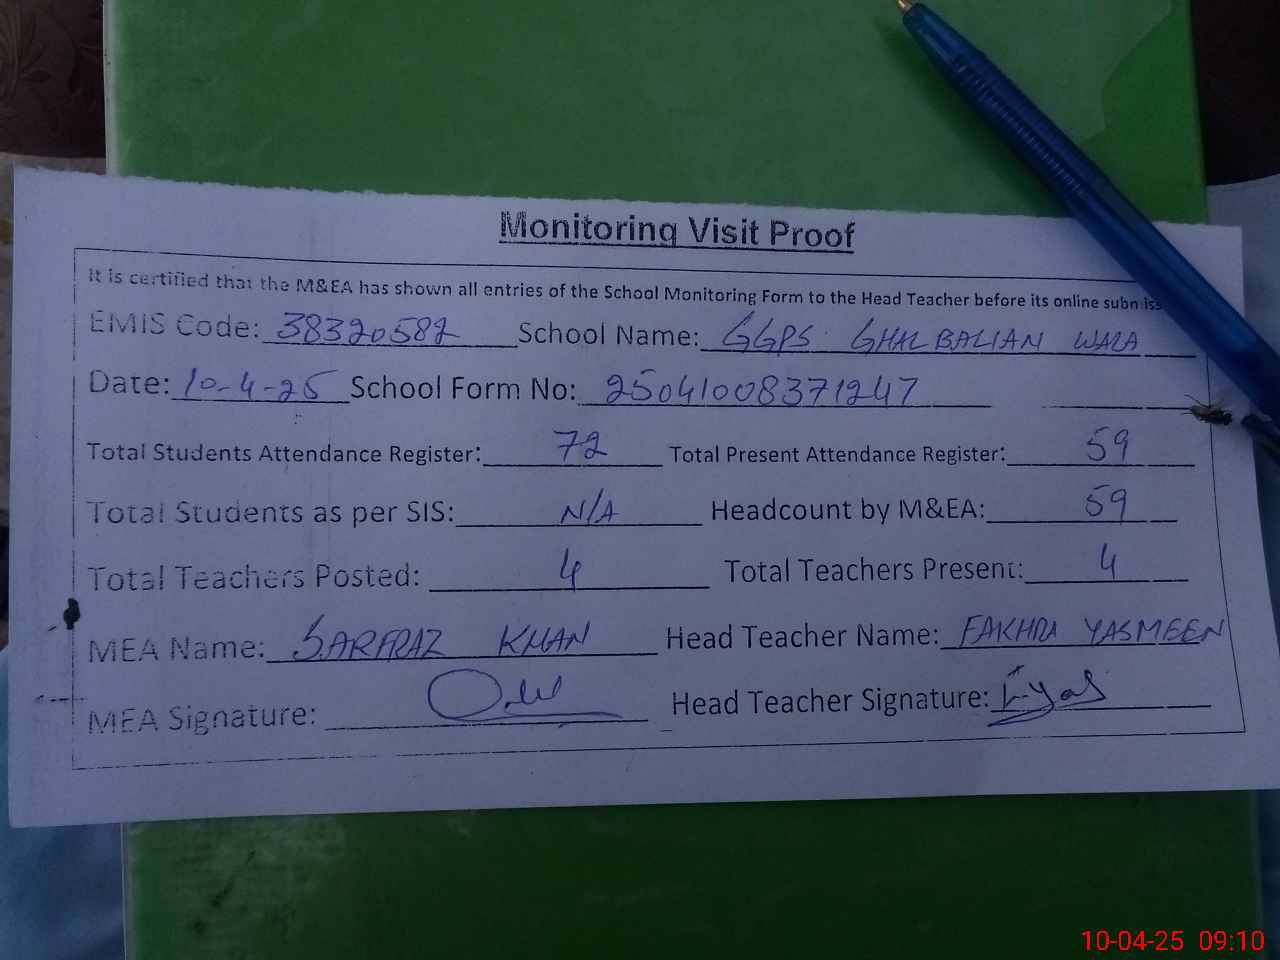 Monitoring Visit Proof
It is certified that the M&EA has shown all entries of the School Monitoring Form to the Head Teacher before its online submiss
EMIS Code: 38320582 School Name: GGPS GHALBALIAN WALA
Date: 10-4-25 School Form No: 25041008371247
Total Students Attendance Register: 72 Total Present Attendance Register: 59
Total Students as per SIS: N/A Headcount by M&EA: 59
Total Teachers Posted: 4 Total Teachers Present: 4
MEA Name: SARFRAZ KHAN Head Teacher Name: FAKHRA YASMEEN
MEA Signature: Head Teacher Signature:
10-04-25 09:10